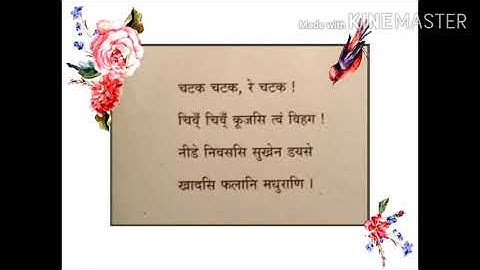 Made with KINEMASTER
चटक चटक, रे चटक !
चियूँ चियूँ कूजसि त्वं विहग !
नीडे निवससि सुखेन डयसे
खादसि फलानि मधुराणि ।